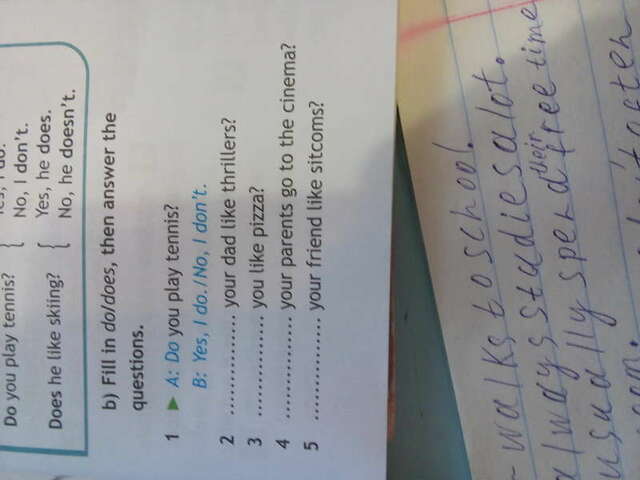 Do you play tennis? { Yes, I do.
No, I don't.
Does he like skiing? { Yes, he does.
No, he doesn't.
b) Fill in do/does, then answer the
questions.
1 ▶ A: Do you play tennis?
B: Yes, I do./No, I don't.
2 .............. your dad like thrillers?
3 .............. you like pizza?
4 .............. your parents go to the cinema?
5 .............. your friend like sitcoms?
- walks to school.
always studies a lot.
usually spend their free time